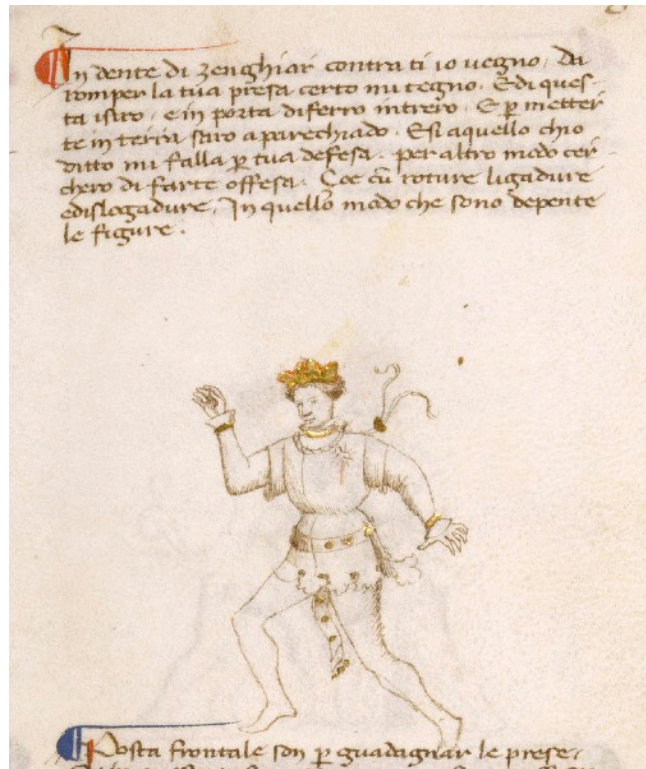 In dente di zenghiar contra ti io vegno. Da
romper la tua presa certo mi tegno. E di ques-
ta isiro, e in porta di ferro intrero. E p metter
te in terra saro aparechiado. E si aquello chio
ditto mi falla p tua defesa. per altro modo cer
chero di farte offesa. Çoe cũ roture ligadure
e dislogadure. In quello modo che sono depente
le figure.
Posta frontale son p guadagnar le prese.